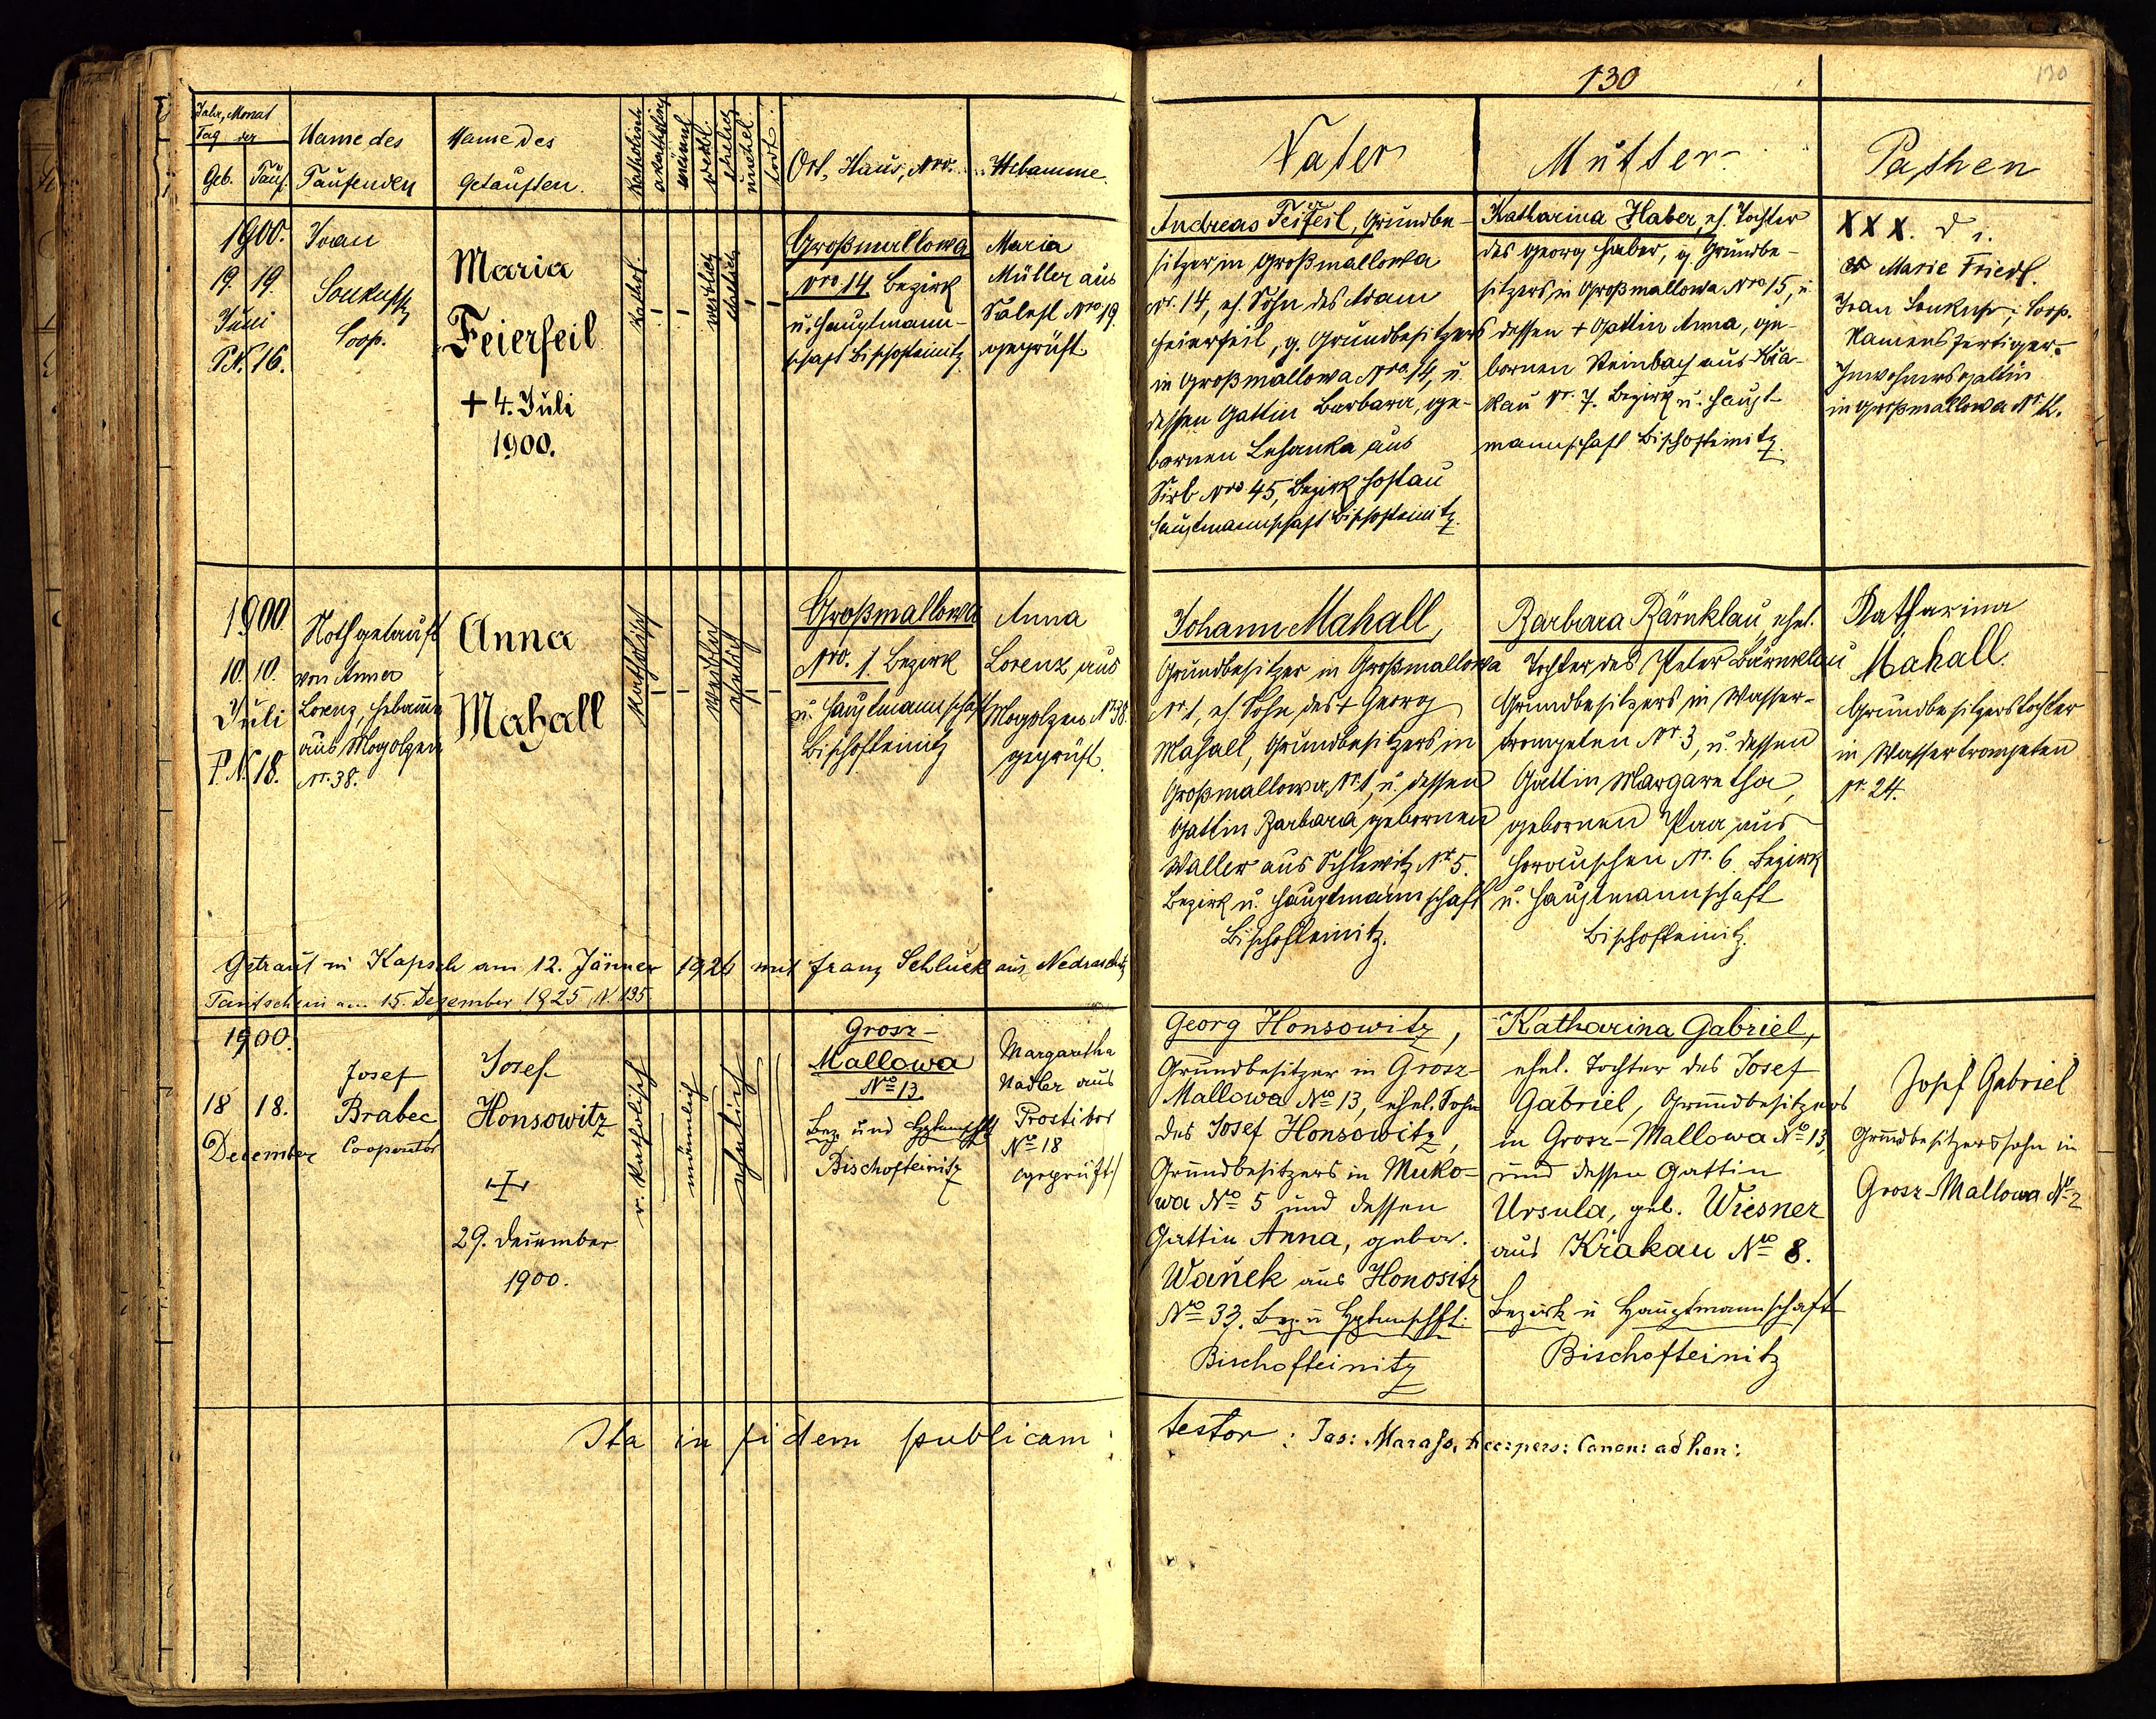 130
130
Jahr, Monat
Tag der
Geb. Tauf.
Name des
Taufenden
Name des
Getauften.
Katholisch
akatholisch
männl.
weibl.
ehelich
unehel.
todt
Ort, Haus, Nro.
Hebamme.
Vater
Mutter
Pathen
1900.
19. 19.
Juni
P.N. 16.
Joan
Soukup
Coop.
Maria
Feierfeil
+ 4. Juli
1900.
Kathol.
weiblich
ehelich
Großmallowa
Nro 14 Bezirk
u. Hauptmann-
schaft Bischofteinitz
Maria
Müller aus
Nro 19.
geprüft.
Andreas Feierfeil, Grundbe-
sitzer in Großmallowa
Nr. 14, eh. Sohn des Adam
Feierfeil, g. Grundbesitzers
in Großmallowa Nro. 14, u.
dessen Gattin Barbara, ge-
bornen aus
Sirb Nro 45, Bezirk Hostau
Hauptmannschaft Bischofteinitz.
Katharina Haber, eh. Tochter
des Georg Haber, g. Grundbe-
sitzers in Großmallowa Nro 15, u.
dessen + Gattin Anna, ge-
bornen Steinbach aus Kra-
kau Nr. 7. Bezirk u. Haupt-
mannschaft Bischofteinitz.
XXX. d. i.
Marie Friedl.
Joan Soukup, Coop.
Namensfertiger.
Inwohnersgattin
in Großmallowa Nr. 12.
1900
10. 10.
Juli
P.N. 18.
Nothgetauft
von Anna
Lorenz, Hebamme
aus Mogolzen
Nr. 38.
Anna
Mahall
Katholisch
weiblich
ehelich
Großmallowa
Nro. 1. Bezirk
u. Hauptmannschaft
Bischofteinitz
Anna
Lorenz aus
Mogolzen Nr. 38.
geprüft.
Johann Mahall,
Grundbesitzer in Großmallowa
Nr. 1, eh. Sohn des + Georg
Mahall, Grundbesitzers in
Großmallowa Nr. 1, u. dessen
Gattin Barbara gebornen
Waller aus Schlewitz Nr. 5.
Bezirk u. Hauptmannschaft
Bischofteinitz.
Barbara Bärnklau, ehel.
Tochter des Peter Bärnklau
Grundbesitzers in Wasser-
trompeten Nr. 3, u. dessen
Gattin Margaretha,
gebornen Paa aus
Horouschen Nr. 6. Bezirk
u. Hauptmannschaft
Bischofteinitz.
Katharina
Mahall.
Grundbesitzerstochter
in Wassertrompeten
Nr. 24.
Getraut in Kapsch am 12. Jänner 1926 mit Franz Schluck aus Nedraschitz
Taufschein am 15. Dezember 1925, N. 135
1900.
18 18.
December
Josef
Brabec
Cooperator
Josef
Honsowitz
+
29. December
1900.
r. katholisch
männlich
ehelich
Grosz-
Mallowa
No 13.
Bez. und Hptmschft
Bischofteinitz
Margaretha
Nadler aus
Prostibor
No 18
(geprüft)
Georg Honsowitz,
Grundbesitzer in Grosz-
Mallowa No 13, ehel. Sohn
des Josef Honsowitz,
Grundbesitzers in Muko-
wa No 5 und dessen
Gattin Anna, gebor.
Wanek aus Honositz
No 33. Bez. u Hptmschft.
Bischofteinitz
Katharina Gabriel,
ehel. Tochter des Josef
Gabriel, Grundbesitzers
in Grosz-Mallowa No 13,
und dessen Gattin
Ursula, geb. Wiesner
aus Krakau No 8.
Bezirk u Hauptmannschaft
Bischofteinitz
Josef Gabriel
Grundbesitzerssohn in
Grosz-Mallowa No 2
Ita in fidem publicam:
testor: Jos: Canon: ad hon: